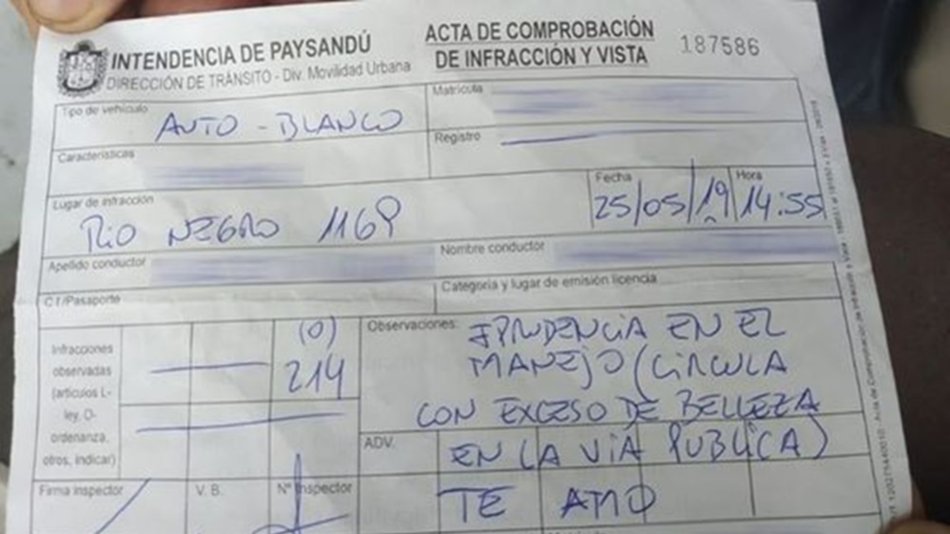 INTENDENCIA DE PAYSANDÚ
DIRECCIÓN DE TRÁNSITO - Div. Movilidad Urbana
ACTA DE COMPROBACIÓN
DE INFRACCIÓN Y VISTA
187586
Tipo de vehículo
AUTO - BLANCO
Matrícula
Características
Registro
Lugar de infracción
RIO NEGRO 1169
Fecha
25/05/19
Hora
14:55
Apellido conductor
Nombre conductor
C.I/Pasaporte
Categoría y lugar de emisión licencia
Infracciones
observadas
(artículos L-
ley, O-
ordenanza,
otros, indicar)
(O)
214
Observaciones:
IPRUDENCIA EN EL
MANEJO (CIRCULA
CON EXCESO DE BELLEZA
EN LA VIA PUBLICA)
ADV.
TE AMO
Firma inspector
V. B.
Nº Inspector